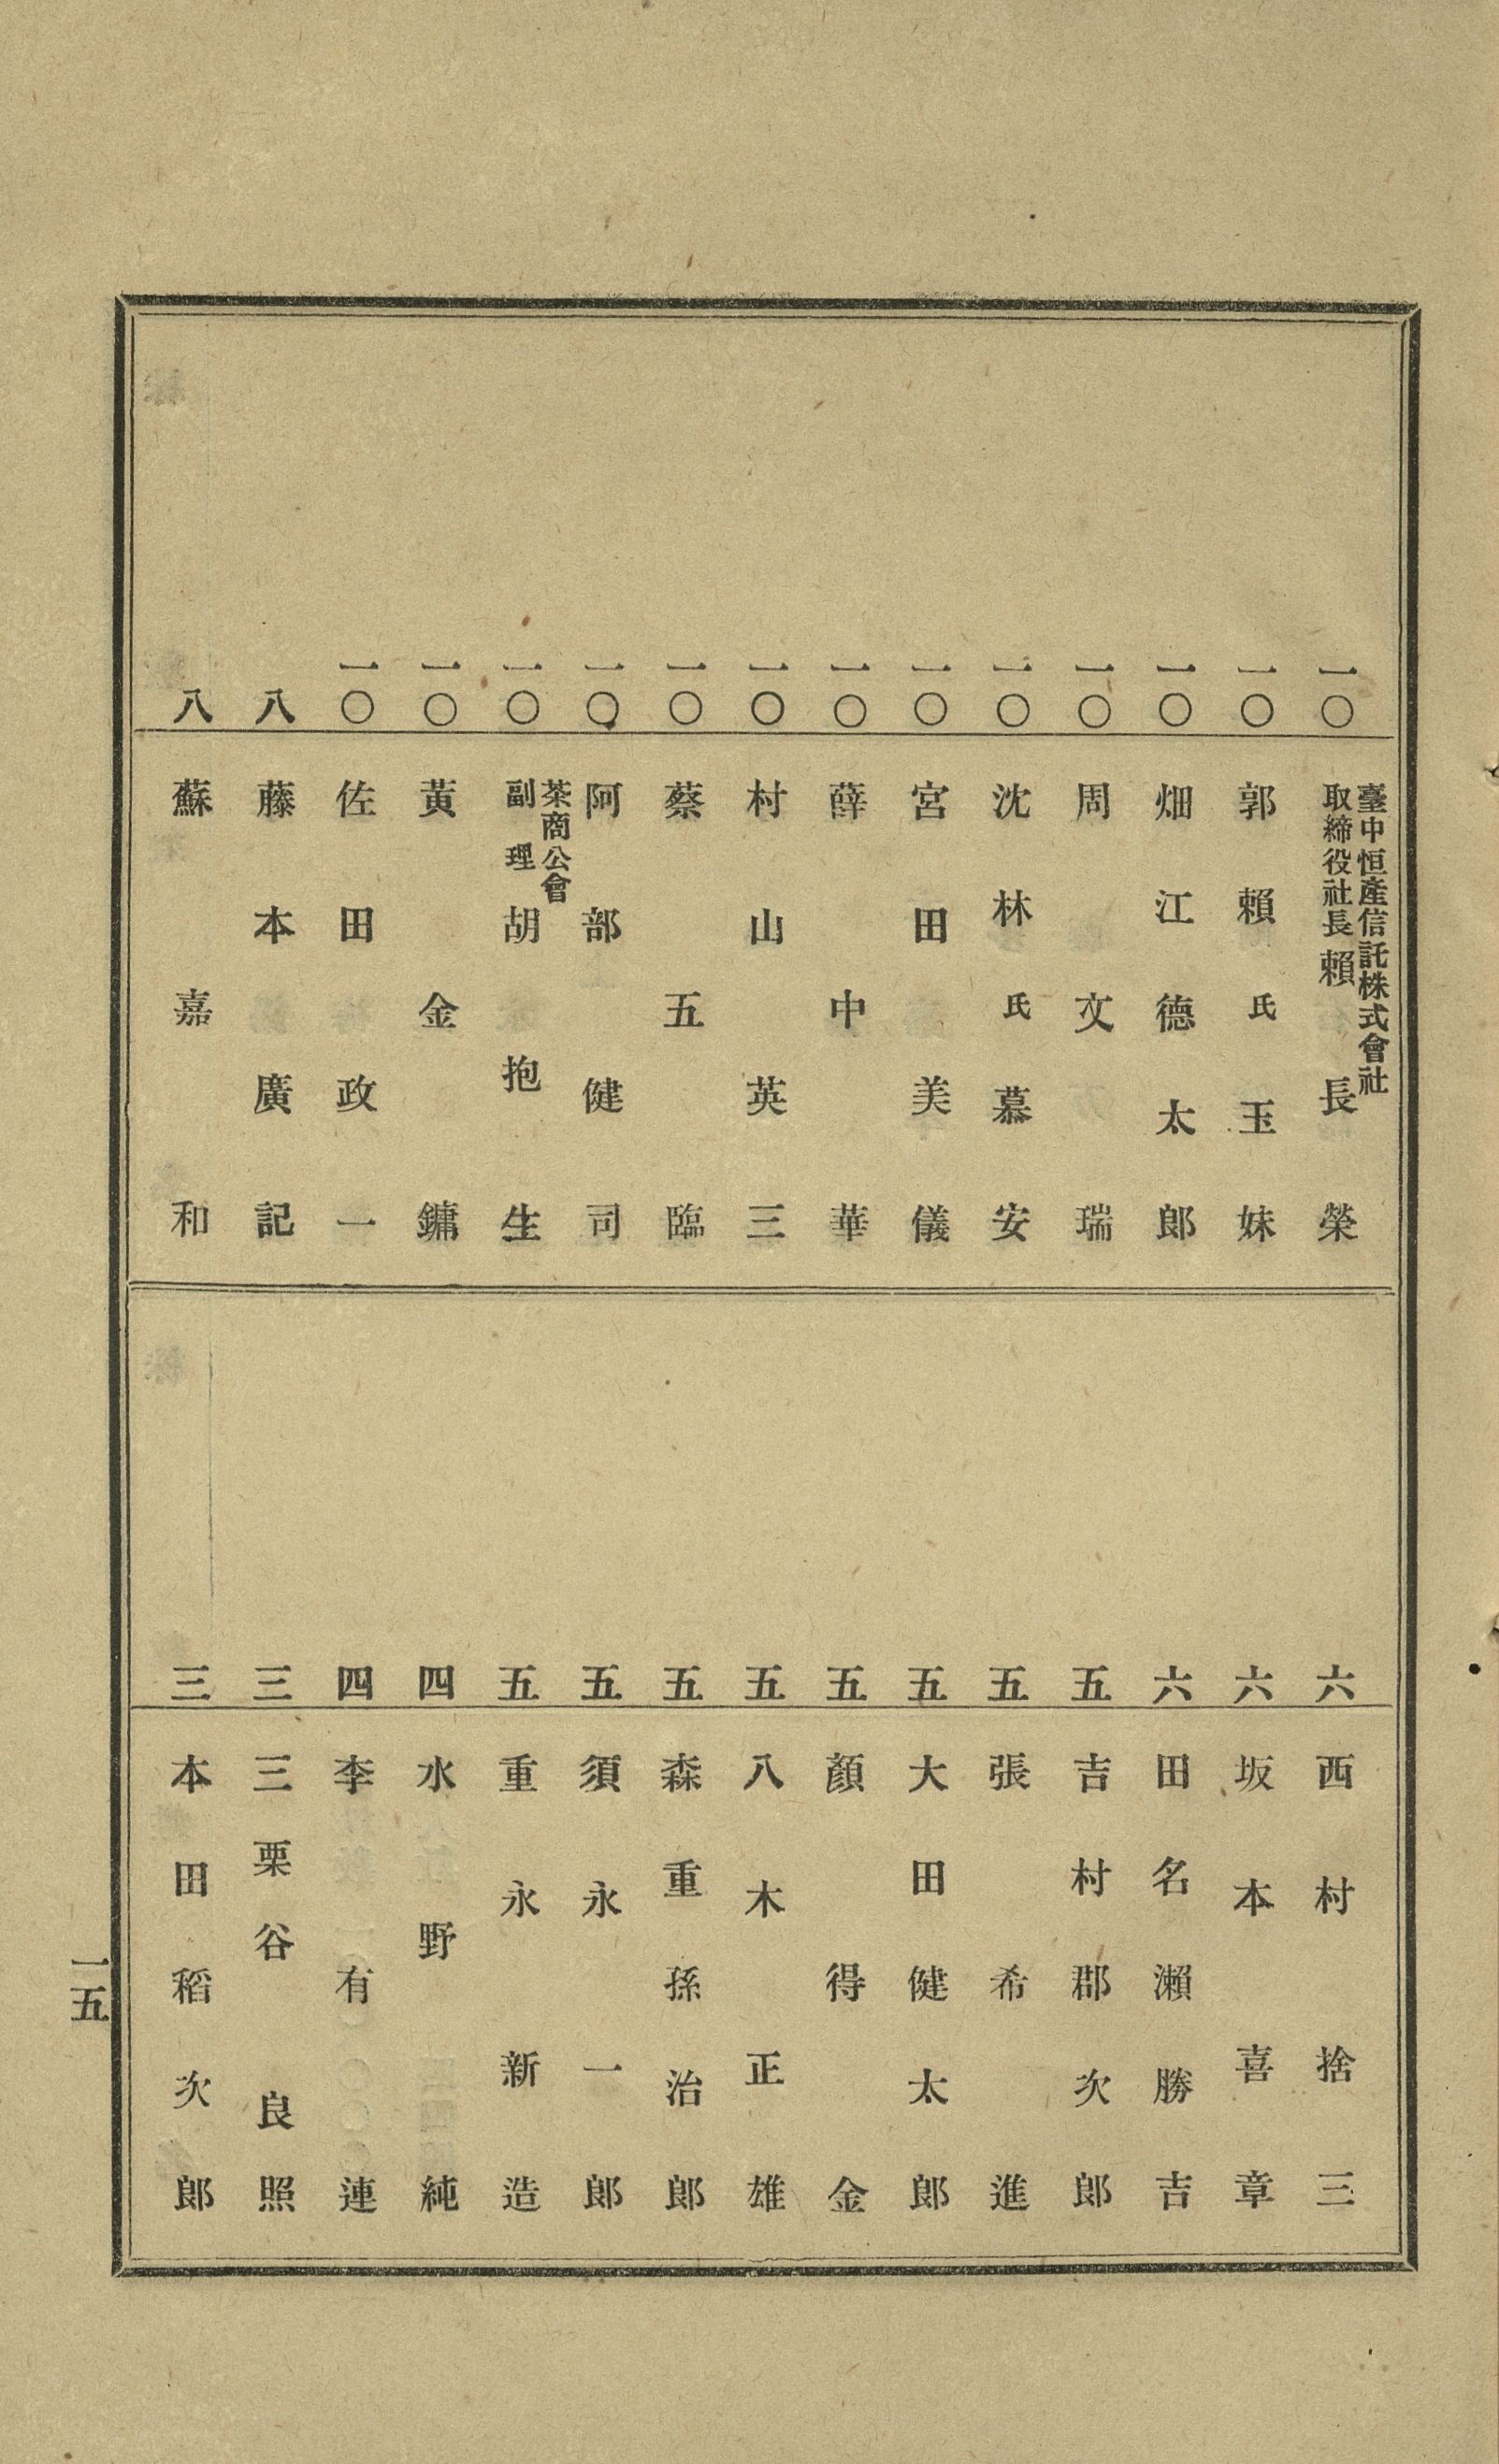 一〇 臺中恒産信託株式會社取締役社長 賴長榮
一〇 郭賴氏玉妹
一〇 畑江德太郎
一〇 周文瑞
一〇 沈林氏慕安
一〇 宮田美儀
一〇 薛中華
一〇 村山英三
一〇 蔡五臨
一〇 阿部健司
一〇 茶商公會副理 胡抱生
一〇 黃金鏞
一〇 佐田政一
八 藤本廣記
八 蘇嘉和
六 西村捨三
六 坂本喜章
六 田名瀨勝吉
五 吉村郡次郎
五 張希進
五 大田健太郎
五 顏得金
五 八木正雄
五 森重孫治郎
五 須永一郎
五 重永新造
四 水野純
四 李有連
三 三栗谷良照
三 本田稻次郎
一五